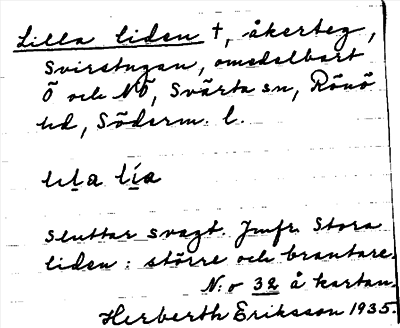 Lilla liden †, åkerteg,
Svirstugan, omedelbart
Ö och NÖ, Svärta sn, Rönö
hd, Söderm. l.
lɩla lía
Sluttar svagt. Jmfr. Stora
liden: större och brantare.
N:o 32 å kartan.
Herberth Eriksson 1935.